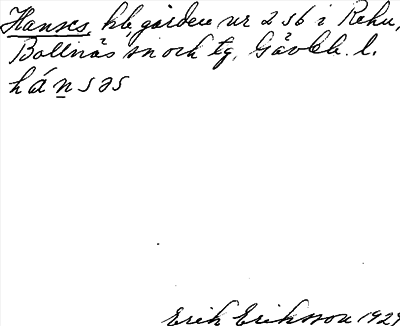 Hanses, kb, gården nr 2 s6 i Rehn,
Bollnäs sn och tg, Gävleb. l.
hánsəs
Erik Eriksson 1929